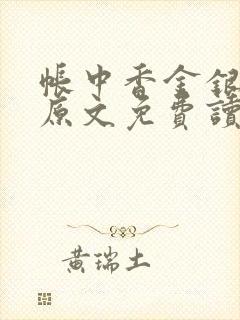 帳中香金銀
原文免費讀
黃瑞土